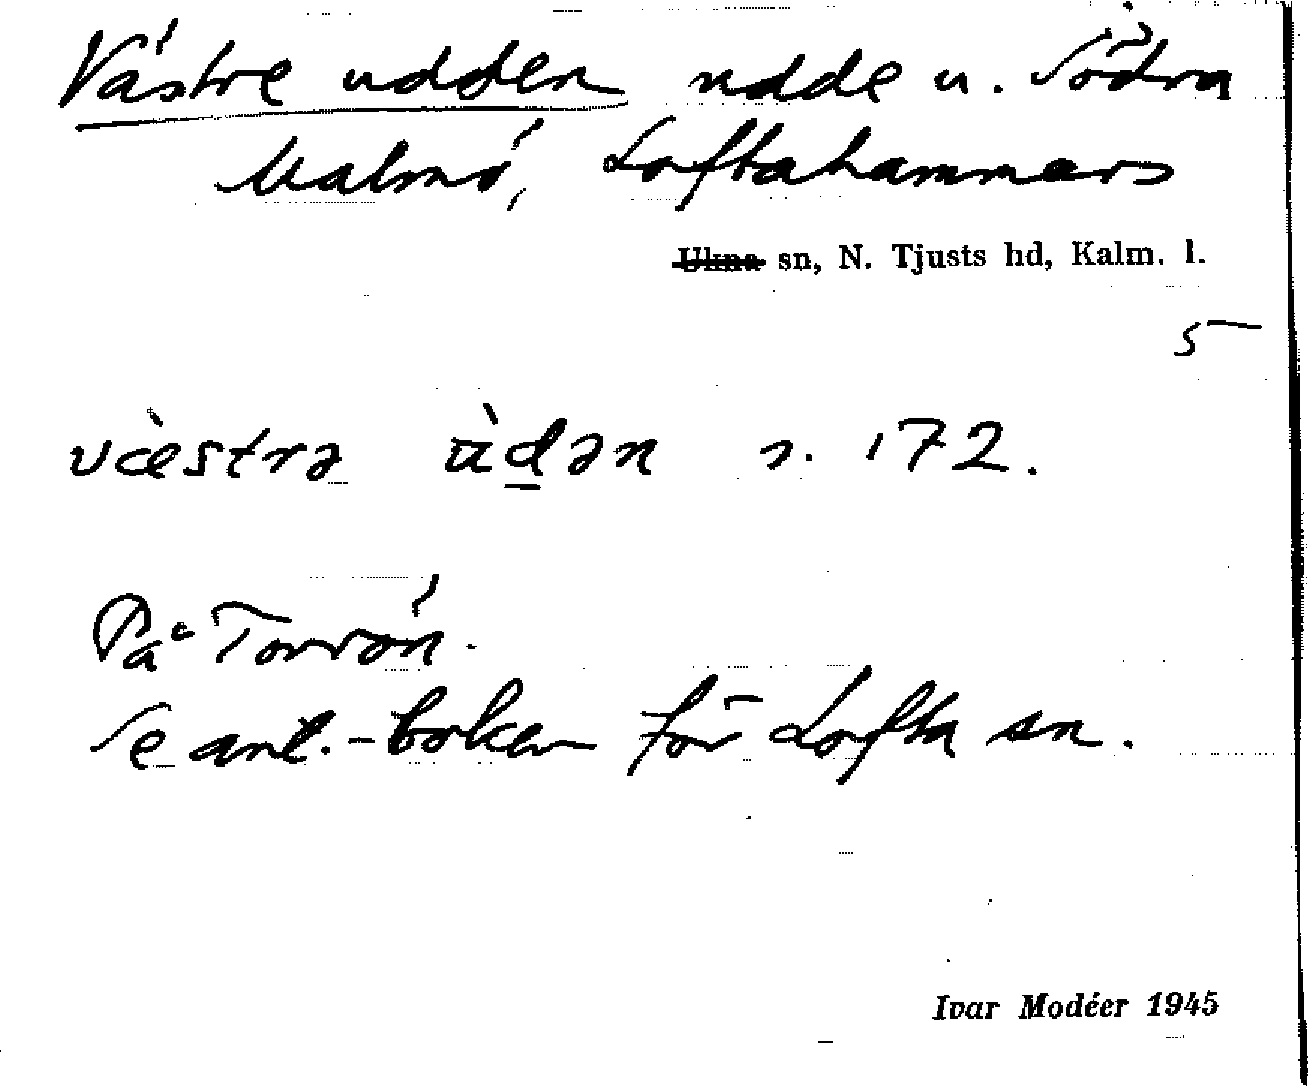 Västre udden udde u. Södra
Malmö, Loftahammars
Ukna sn, N. Tjusts hd, Kalm. l.
5
væ̀strə ùd̲ən s. 172.
På Torrön.
Se ant.-boken för Lofta sn.
Ivar Modéer 1945